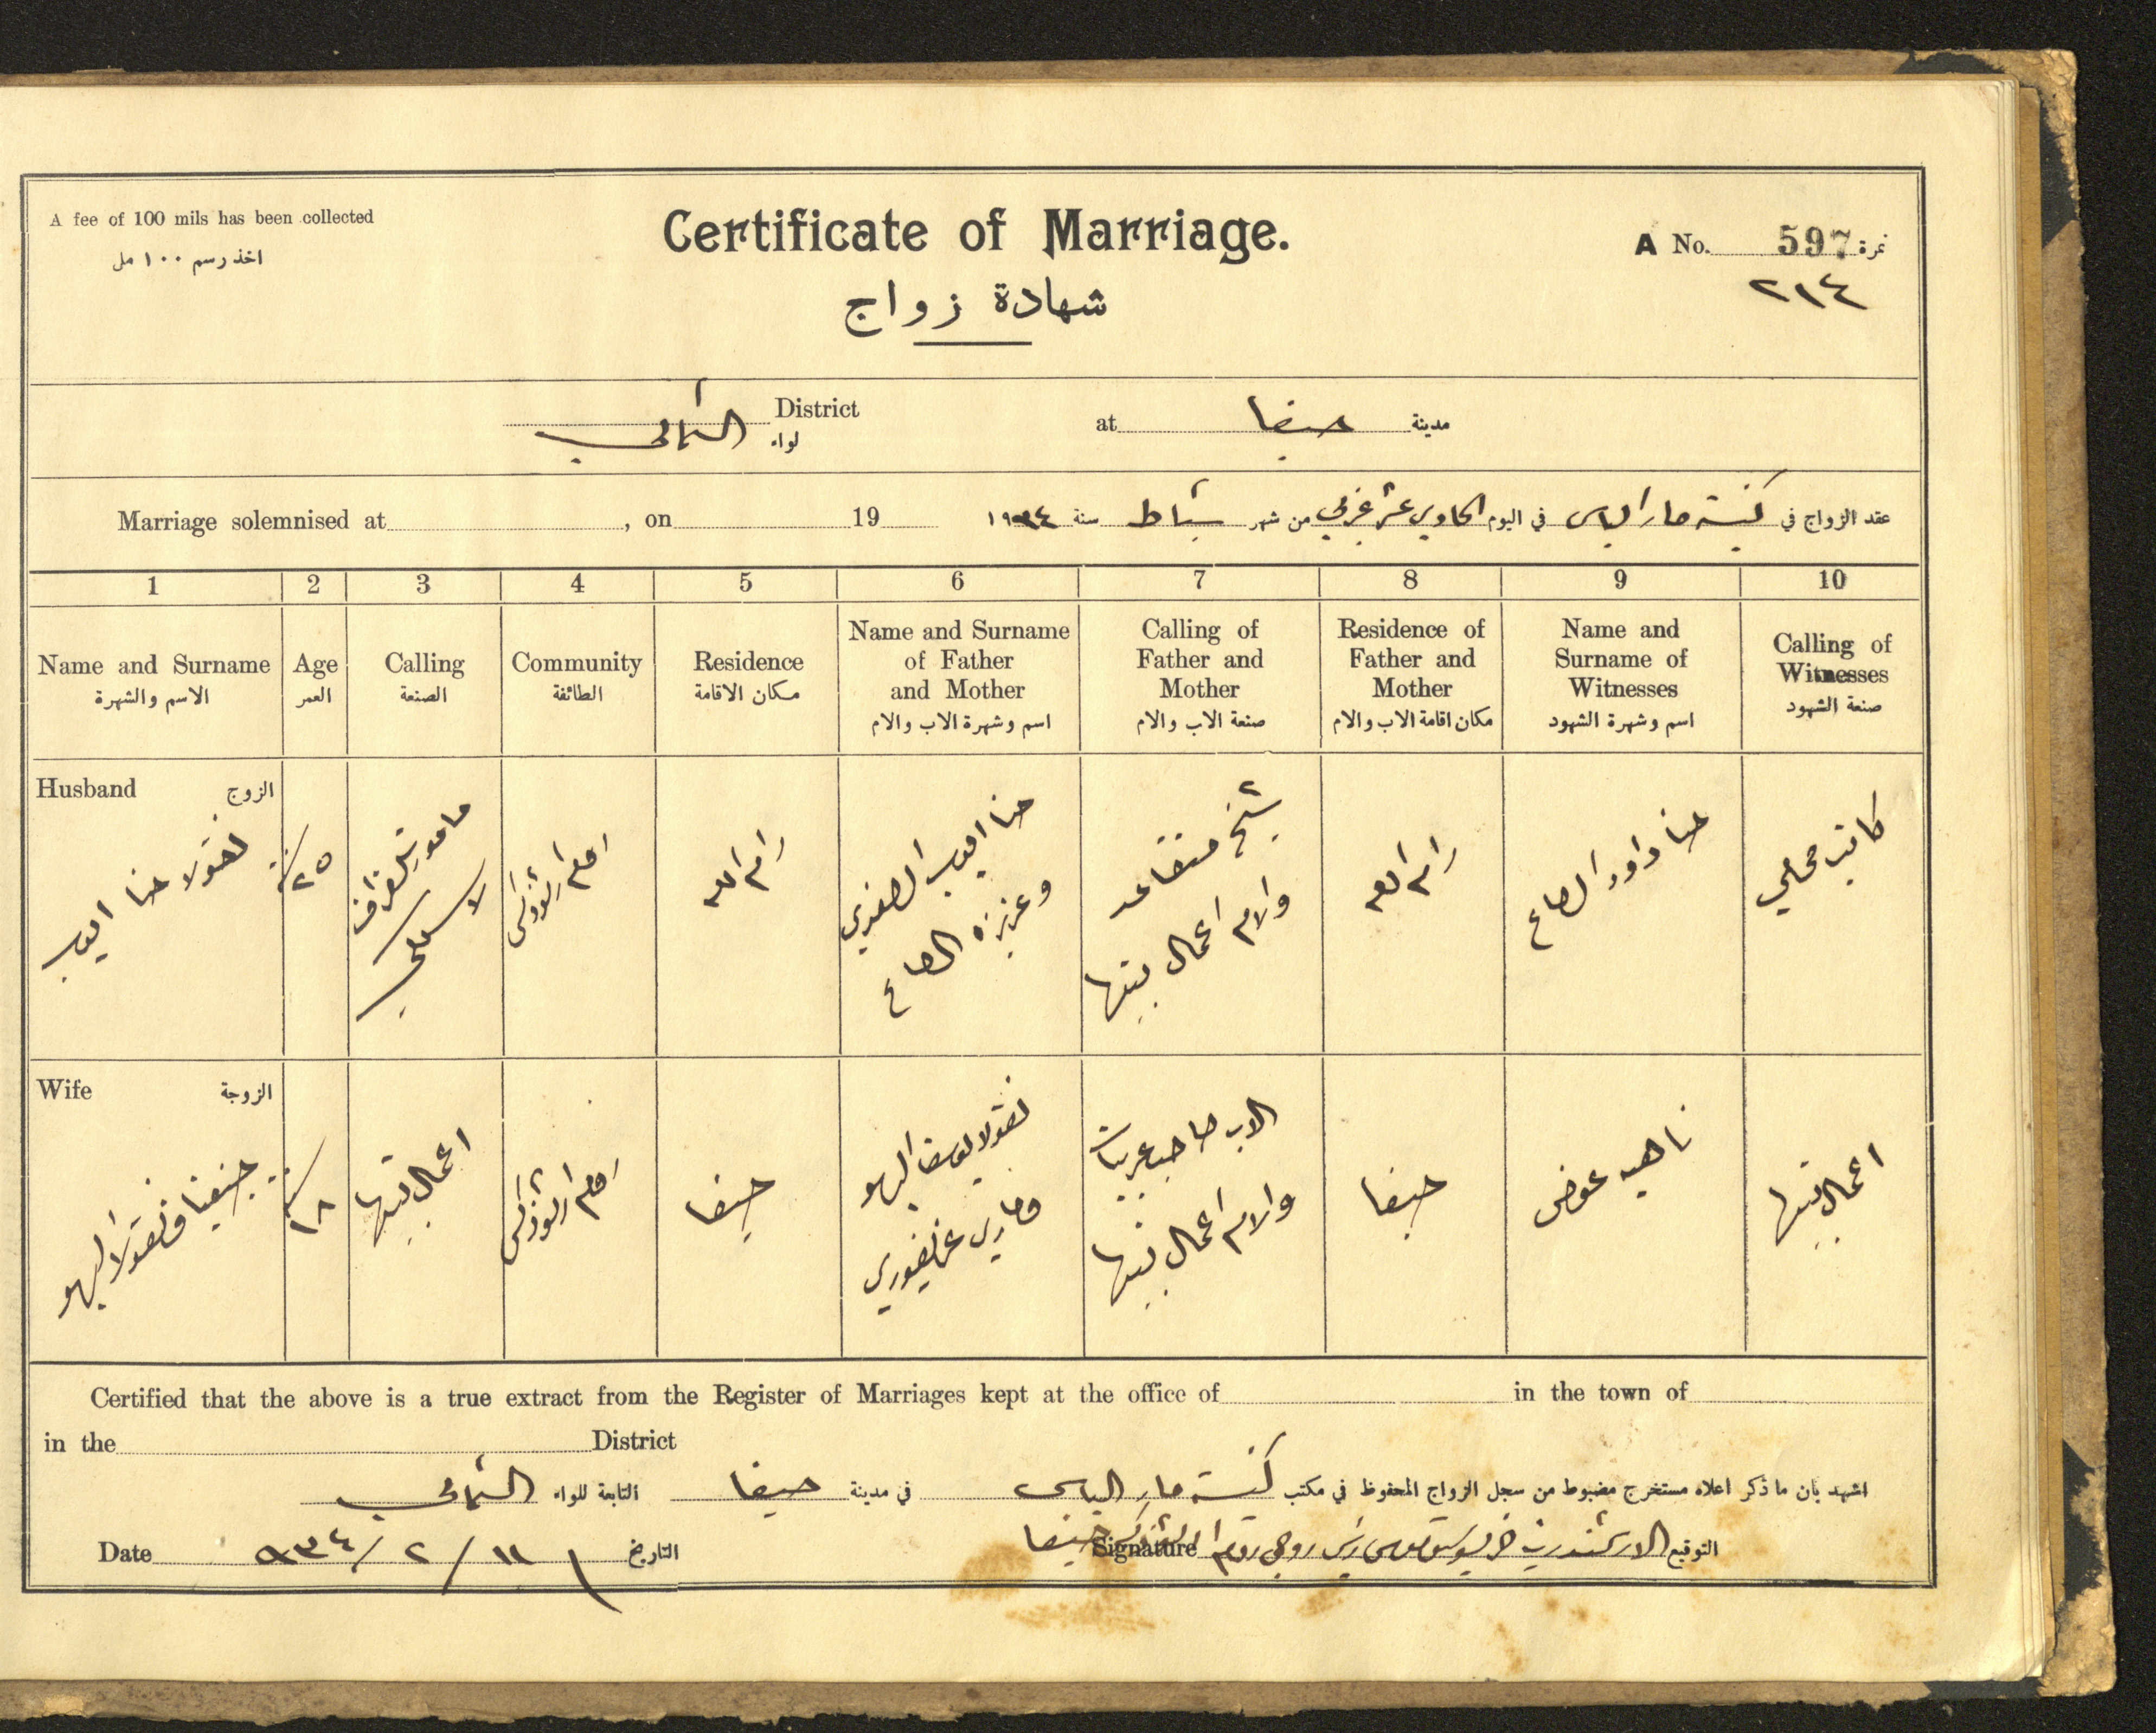 A fee of 100 mils has been collected
اخذ رسم ١٠٠ مل
Certificate of Marriage.
شهادة زواج
A No. 597 نمرة
٢١٤
District لواء الشمالي
at حيفا مدينة
Marriage solemnised at , on 19
عقد الزواج في كنيسة مار الياس في اليوم الحادي عشر غربي من شهر شباط سنة ١٩٣٤
1 2 3 4 5 6 7 8 9 10
Name and Surname
الاسم والشهرة
Age
العمر
Calling
الصنعة
Community
الطائفة
Residence
مكان الاقامة
Name and Surname
of Father
and Mother
اسم وشهرة الاب والام
Calling of
Father and
Mother
صنعة الاب والام
Residence of
Father and
Mother
مكان اقامة الاب والام
Name and
Surname of
Witnesses
اسم وشهرة الشهود
Calling of
Witnesses
صنعة الشهود
Husband الزوج
نقولا حنا ايوب
٢٥
مامور تلغراف
لاسلكي
روم ارثوذكس
رام الله
حنا ايوب
وعزيزه الصاع
شيخ متقاعد
والام اعمال بيتها
رام الله
حنا داود الصاع
كاتب محامي
Wife الزوجة
نقولا اليهو
١٨
اعمال بيتها
روم ارثوذكس
حيفا
نقولا يوسف اليهو
وماري
الاب صاحب عربيات
والام اعمال بيتها
حيفا
عوض
اعمال بيتها
Certified that the above is a true extract from the Register of Marriages kept at the office of in the town of
in the District
اشهد بان ما ذكر اعلاه مستخرج مضبوط من سجل الزواج المحفوظ في مكتب كنيسة مار الياس في مدينة حيفا التابعة للواء الشمالي
التوقيع الارشمندريت رئيس روحي روم ارثوذكس حيفا Signature
Date ٩٣٤/٢/١١ التاريخ